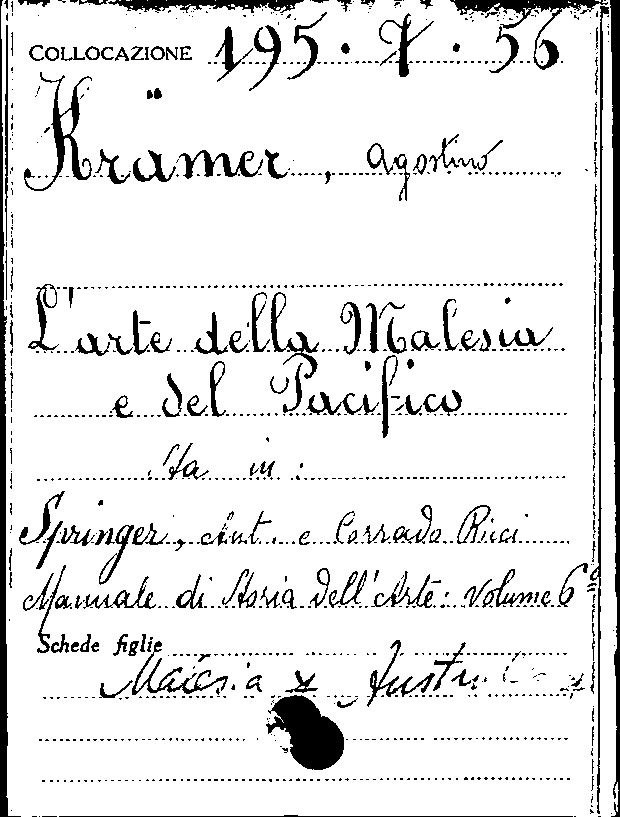 COLLOCAZIONE 195. I. 56
Krämer, Agostino
L'arte della Malesia
e del Pacifico
Sta in:
Springer, Ant. e Corrado Ricci
Manuale di Storia dell'Arte: Volume 6º
Schede figlie
Malesia